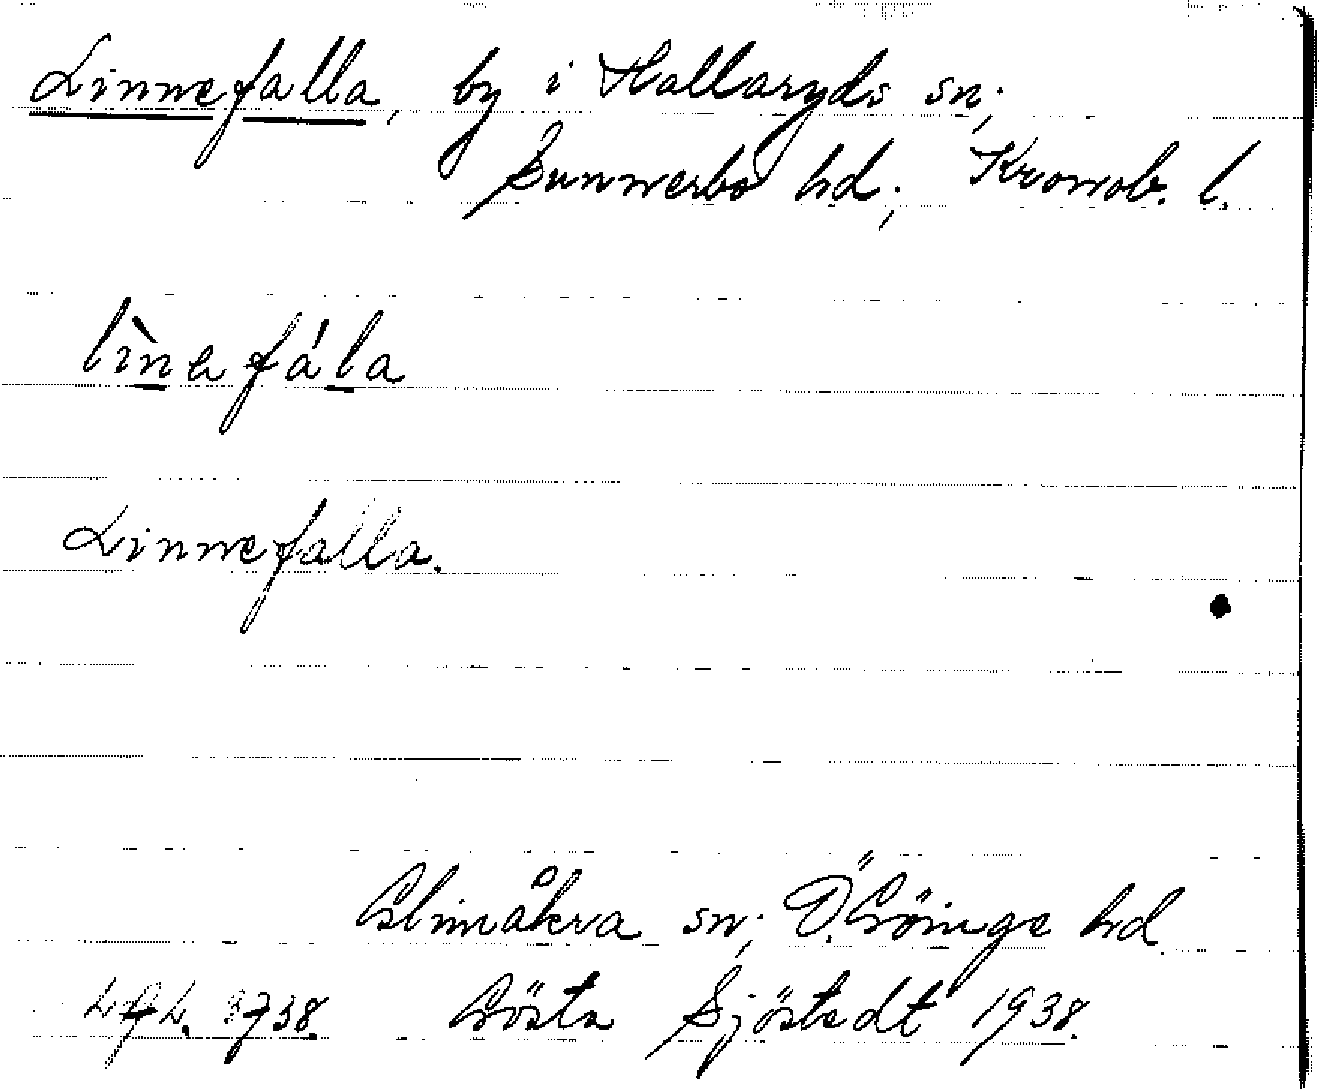 Linnefalla, by i Hallaryds sn;
Sunnerbo hd; Kronob. l.
lìnefála
Linnefalla.
Glimåkra sn; Ö. Göinge hd.
Gösta Sjöstedt 1938.